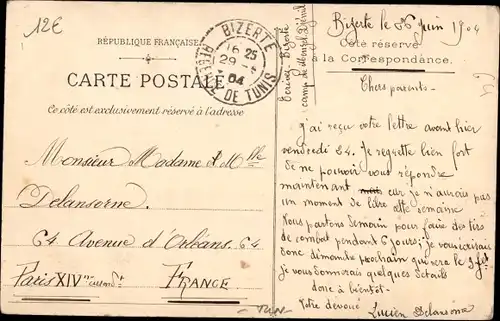 12E
RÉPUBLIQUE FRANÇAISE
CARTE POSTALE
Ce côté est exclusivement réservé à l'adresse
BIZERTE
16 25
29
04
DE TUNIS
Monsieur Madame et Mlle
Delansorne.
64 Avenue d'Orléans. 64
Paris XIVme
FRANCE
TUN
Écrivez Bizerte
camp de
Bizerte le 26 Juin 1904
Côté réservé
à la Correspondance.
Chers parents-
J'ai reçu votre lettre avant hier
vendredi 24. Je regrette bien fort
de ne pouvoir vous répondre
maintenant car je n'aurais pas
un moment de libre cette semaine
Nous partons demain pour faire des tirs
de combat pendant 6 jours; je vous écrirais
donc dimanche prochain qui sera le 3 Jet
je vous donnerais quelques détails
donc à bientôt-
Votre dévoué Lucien Delansorne